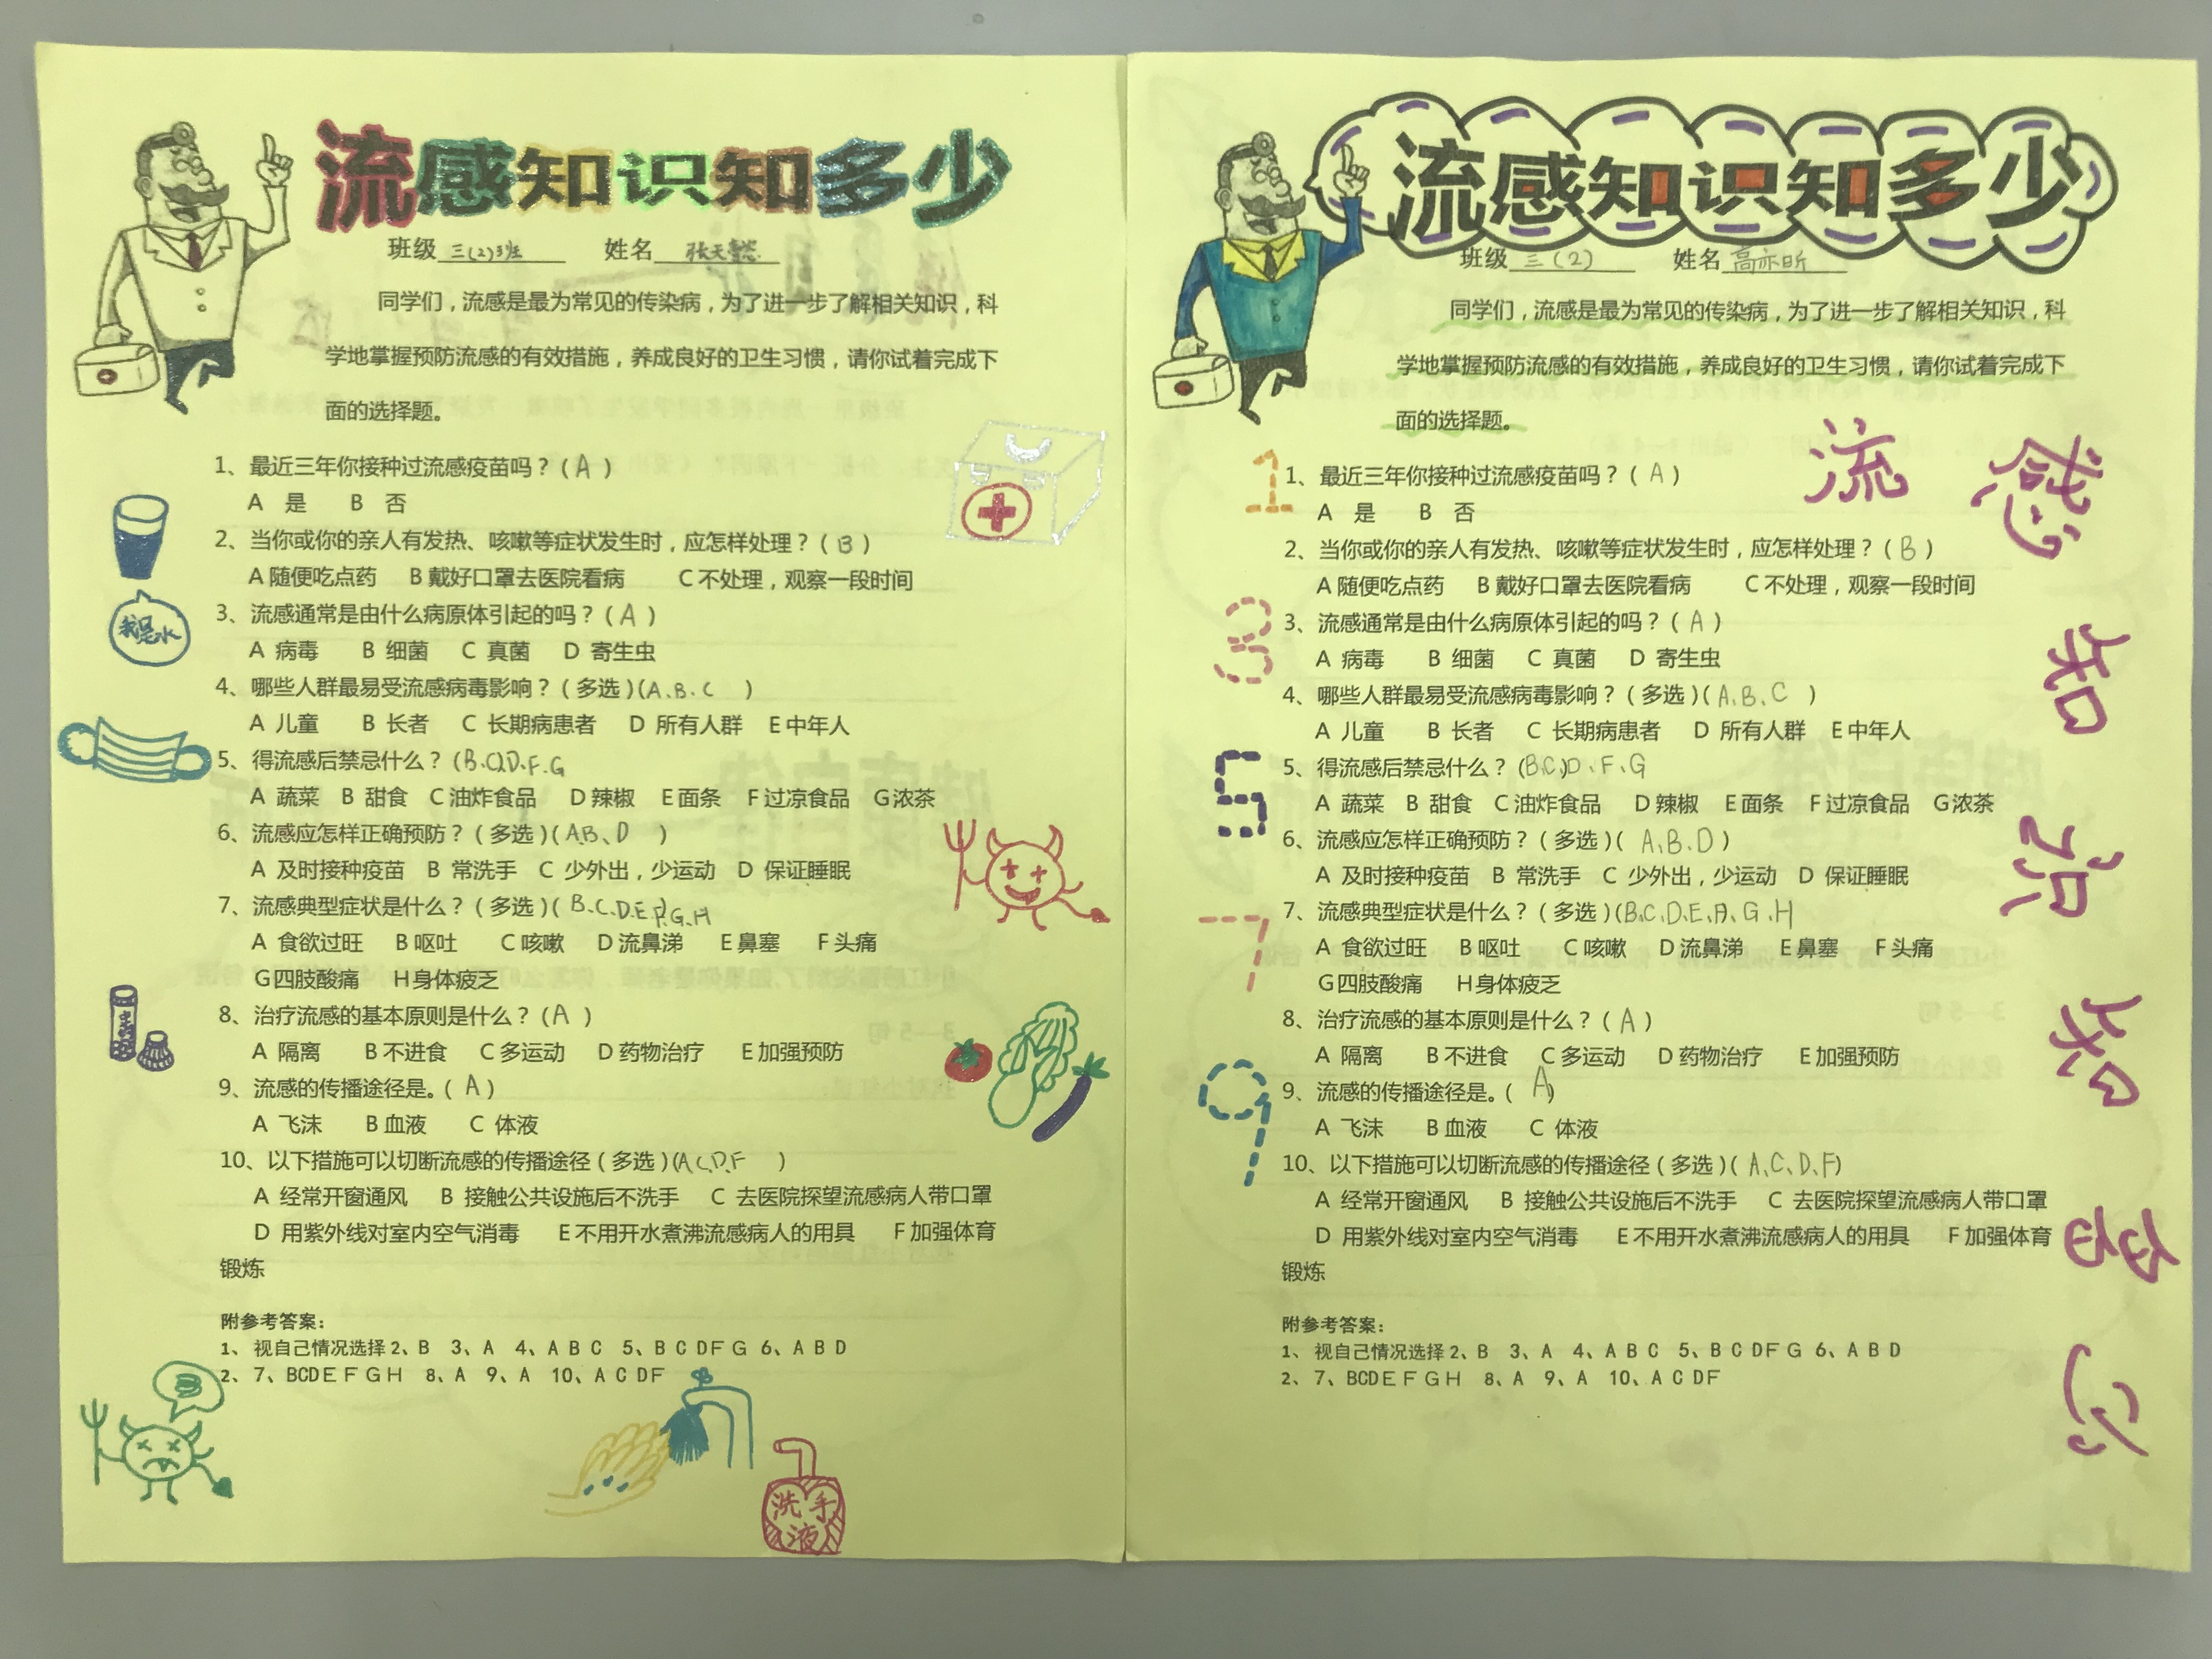 流感知识知多少
班级 三(2)班 姓名 张天懿
同学们，流感是最为常见的传染病，为了进一步了解相关知识，科
学地掌握预防流感的有效措施，养成良好的卫生习惯，请你试着完成下
面的选择题。
1、最近三年你接种过流感疫苗吗？（A）
A 是 B 否
2、当你或你的亲人有发热、咳嗽等症状发生时，应怎样处理？（B）
A 随便吃点药 B 戴好口罩去医院看病 C 不处理，观察一段时间
3、流感通常是由什么病原体引起的吗？（A）
A 病毒 B 细菌 C 真菌 D 寄生虫
4、哪些人群最易受流感病毒影响？（多选）（A、B、C）
A 儿童 B 长者 C 长期病患者 D 所有人群 E 中年人
5、得流感后禁忌什么？（B、C）D、F、G
A 蔬菜 B 甜食 C 油炸食品 D 辣椒 E 面条 F 过凉食品 G 浓茶
6、流感应怎样正确预防？（多选）（A、B、D）
A 及时接种疫苗 B 常洗手 C 少外出，少运动 D 保证睡眠
7、流感典型症状是什么？（多选）（B、C、D、E、F、G、H
A 食欲过旺 B 呕吐 C 咳嗽 D 流鼻涕 E 鼻塞 F 头痛
G 四肢酸痛 H 身体疲乏
8、治疗流感的基本原则是什么？（A）
A 隔离 B 不进食 C 多运动 D 药物治疗 E 加强预防
9、流感的传播途径是。（A）
A 飞沫 B 血液 C 体液
10、以下措施可以切断流感的传播途径（多选）（A、C、D、F）
A 经常开窗通风 B 接触公共设施后不洗手 C 去医院探望流感病人带口罩
D 用紫外线对室内空气消毒 E 不用开水煮沸流感病人的用具 F 加强体育
锻炼
附参考答案：
1、视自己情况选择 2、B 3、A 4、A B C 5、B C D F G 6、A B D
2、7、BCD E F G H 8、A 9、A 10、A C DF
我是水
洗手
液
流感知识知多少
班级 三(2) 姓名 高亦昕
同学们，流感是最为常见的传染病，为了进一步了解相关知识，科
学地掌握预防流感的有效措施，养成良好的卫生习惯，请你试着完成下
面的选择题。
1、最近三年你接种过流感疫苗吗？（A）
A 是 B 否
2、当你或你的亲人有发热、咳嗽等症状发生时，应怎样处理？（B）
A 随便吃点药 B 戴好口罩去医院看病 C 不处理，观察一段时间
3、流感通常是由什么病原体引起的吗？（A）
A 病毒 B 细菌 C 真菌 D 寄生虫
4、哪些人群最易受流感病毒影响？（多选）（A、B、C）
A 儿童 B 长者 C 长期病患者 D 所有人群 E 中年人
5、得流感后禁忌什么？（B、C、）D、F、G
A 蔬菜 B 甜食 C 油炸食品 D 辣椒 E 面条 F 过凉食品 G 浓茶
6、流感应怎样正确预防？（多选）（A、B、D）
A 及时接种疫苗 B 常洗手 C 少外出，少运动 D 保证睡眠
7、流感典型症状是什么？（多选）（B、C、D、E、F）、G、H
A 食欲过旺 B 呕吐 C 咳嗽 D 流鼻涕 E 鼻塞 F 头痛
G 四肢酸痛 H 身体疲乏
8、治疗流感的基本原则是什么？（A）
A 隔离 B 不进食 C 多运动 D 药物治疗 E 加强预防
9、流感的传播途径是。（A）
A 飞沫 B 血液 C 体液
10、以下措施可以切断流感的传播途径（多选）（A、C、D、F）
A 经常开窗通风 B 接触公共设施后不洗手 C 去医院探望流感病人带口罩
D 用紫外线对室内空气消毒 E 不用开水煮沸流感病人的用具 F 加强体育
锻炼
附参考答案：
1、视自己情况选择 2、B 3、A 4、A B C 5、B C D F G 6、A B D
2、7、BCD E F G H 8、A 9、A 10、A C DF
1
3
5
7
9
流感
知
识
知
多
少